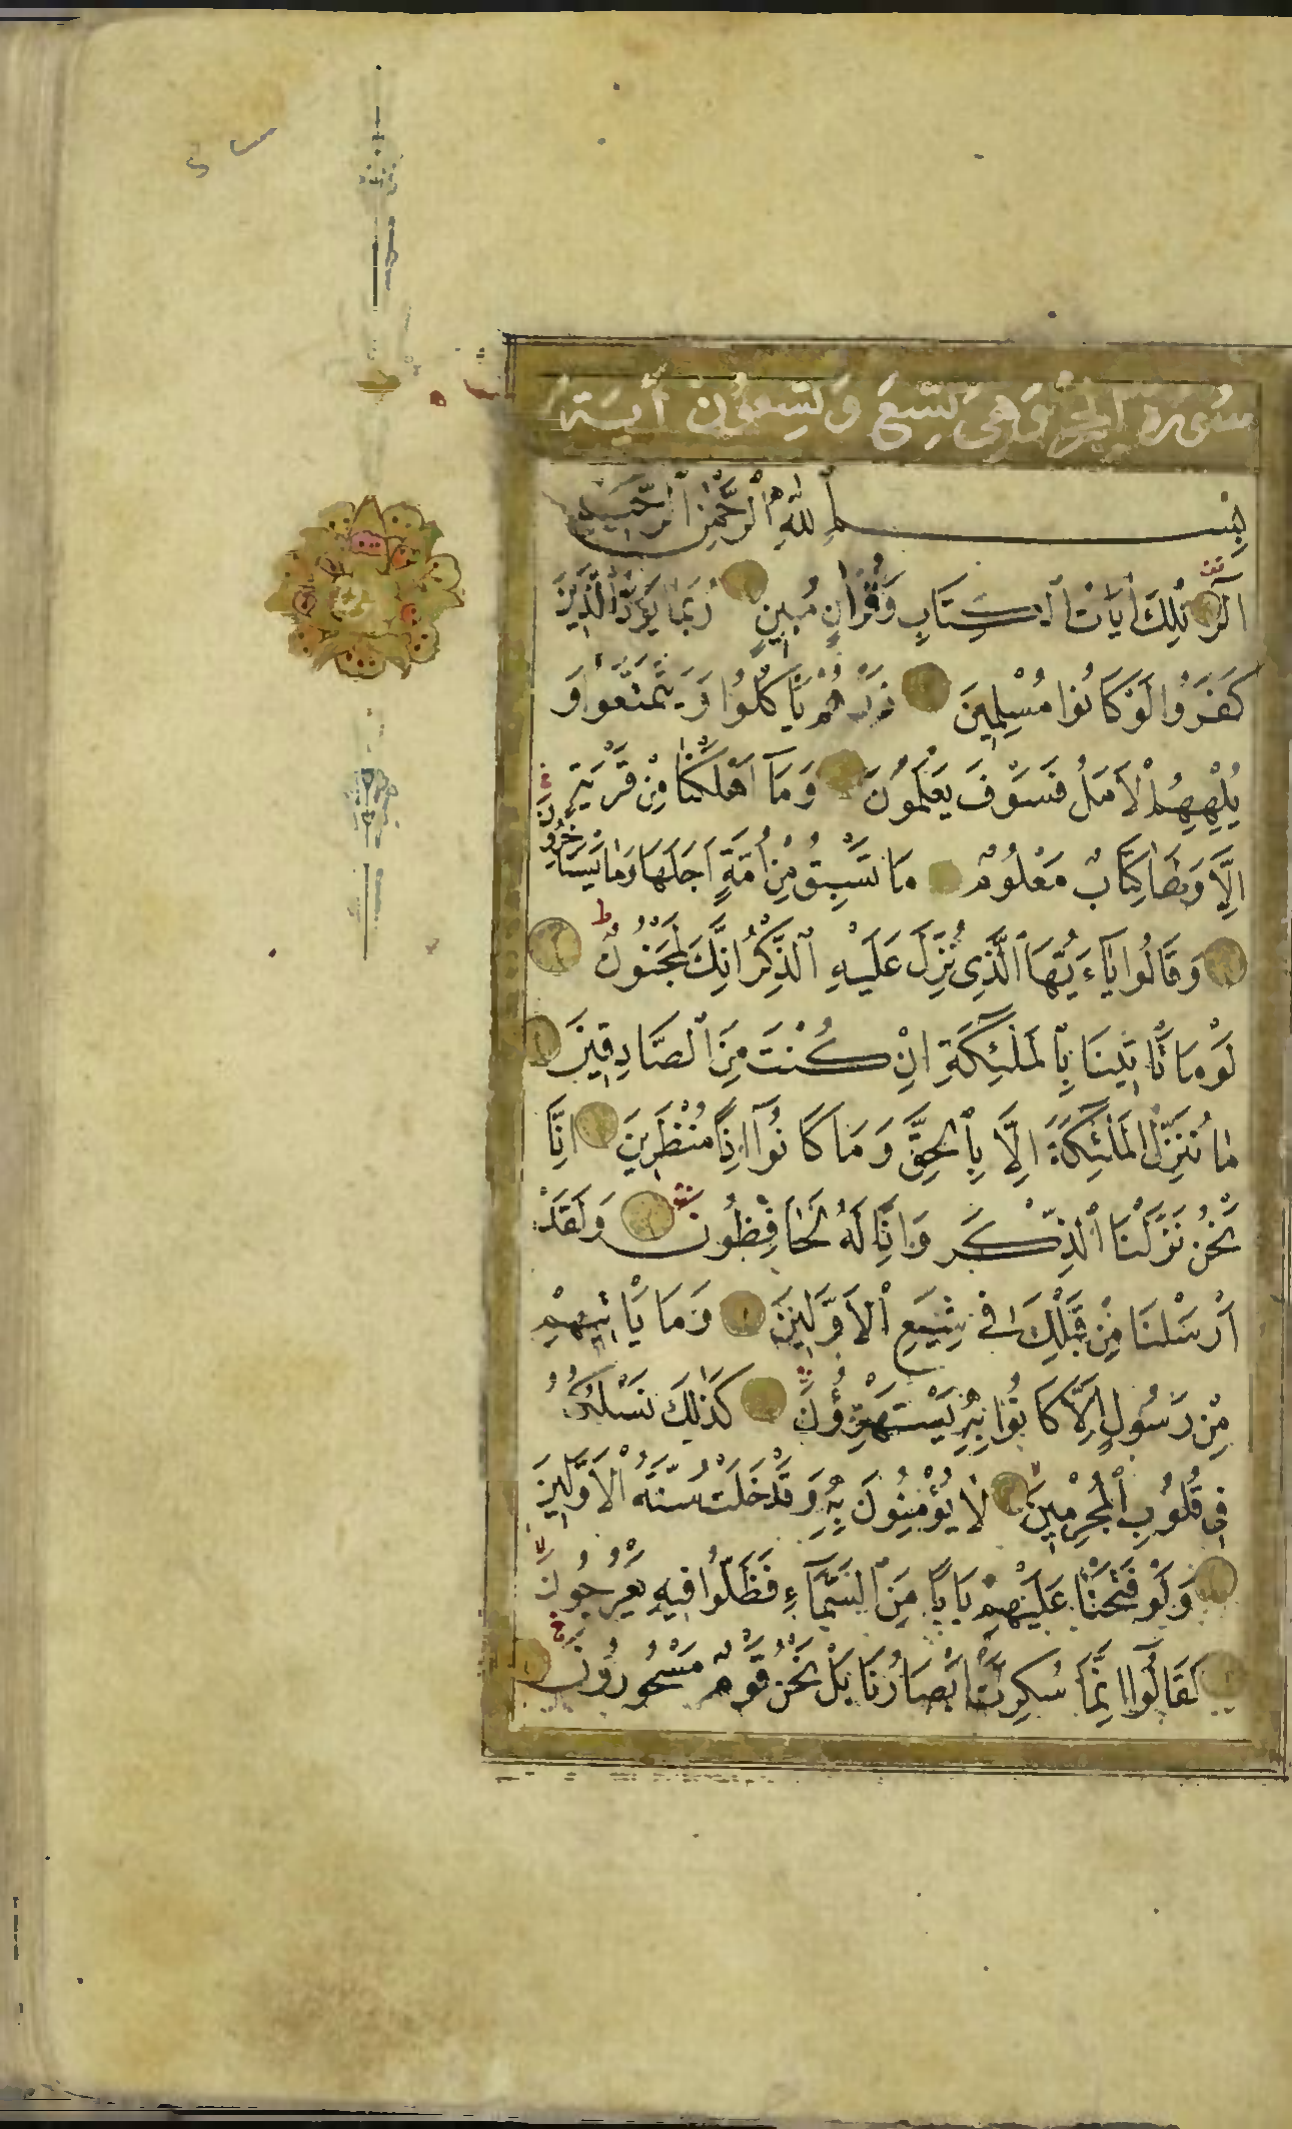 سُورَةُ الحِجْرِ وَهِىَ تِسْعٌ وَتِسْعُونَ أيَة
بِسْمِ ٱللّٰهِ ٱلرَّحْمٰنِ ٱلرَّحِيمِ
الٓرٰ تِلْكَ اٰيَاتُ ٱلْكِتَابِ وَقُرْاٰنٍ مُبِينٍ رُبَمَا يَوَدُّ ٱلَّذِينَ
كَفَرُوا لَوْ كَانُوا مُسْلِمِينَ ذَرْهُمْ يَأْكُلُوا وَيَتَمَتَّعُوا وَ
يُلْهِهِمُ ٱلْاَمَلُ فَسَوْفَ يَعْلَمُونَ وَمَآ اَهْلَكْنَا مِنْ قَرْيَةٍ
اِلَّا وَلَهَا كِتَابٌ مَعْلُومٌ مَا تَسْبِقُ مِنْ اُمَّةٍ اَجَلَهَا وَمَا يَسْتَأْخِرُونَ
وَقَالُوا يَآءَيُّهَا ٱلَّذِى نُزِّلَ عَلَيْهِ ٱلذِّكْرُ اِنَّكَ لَمَجْنُونٌ ط
لَوْمَا تَأْتِينَا بِٱلْمَلٰٓئِكَةِ اِنْ كُنْتَ مِنَ ٱلصَّادِقِينَ
مَا نُنَزِّلُ ٱلْمَلٰٓئِكَةَ اِلَّا بِٱلْحَقِّ وَمَا كَانُوٓا اِذًا مُنْظَرِينَ اِنَّا
نَحْنُ نَزَّلْنَا ٱلذِّكْرَ وَاِنَّا لَهُ لَحَافِظُونَ وَلَقَدْ
اَرْسَلْنَا مِنْ قَبْلِكَ فِى شِيَعِ ٱلْاَوَّلِينَ وَمَا يَأْتِيهِمْ
مِنْ رَسُولٍ اِلَّا كَانُوا بِهِ يَسْتَهْزِؤُنَ كَذٰلِكَ نَسْلُكُهُ
فِى قُلُوبِ ٱلْمُجْرِمِينَ لَا يُؤْمِنُونَ بِهِ وَقَدْ خَلَتْ سُنَّةُ ٱلْاَوَّلِينَ
وَلَوْ فَتَحْنَا عَلَيْهِمْ بَابًا مِنَ ٱلسَّمَآءِ فَظَلُّوا فِيهِ يَعْرُجُونَ
لَقَالُوٓا اِنَّمَا سُكِّرَتْ اَبْصَارُنَا بَلْ نَحْنُ قَوْمٌ مَسْحُورُونَ